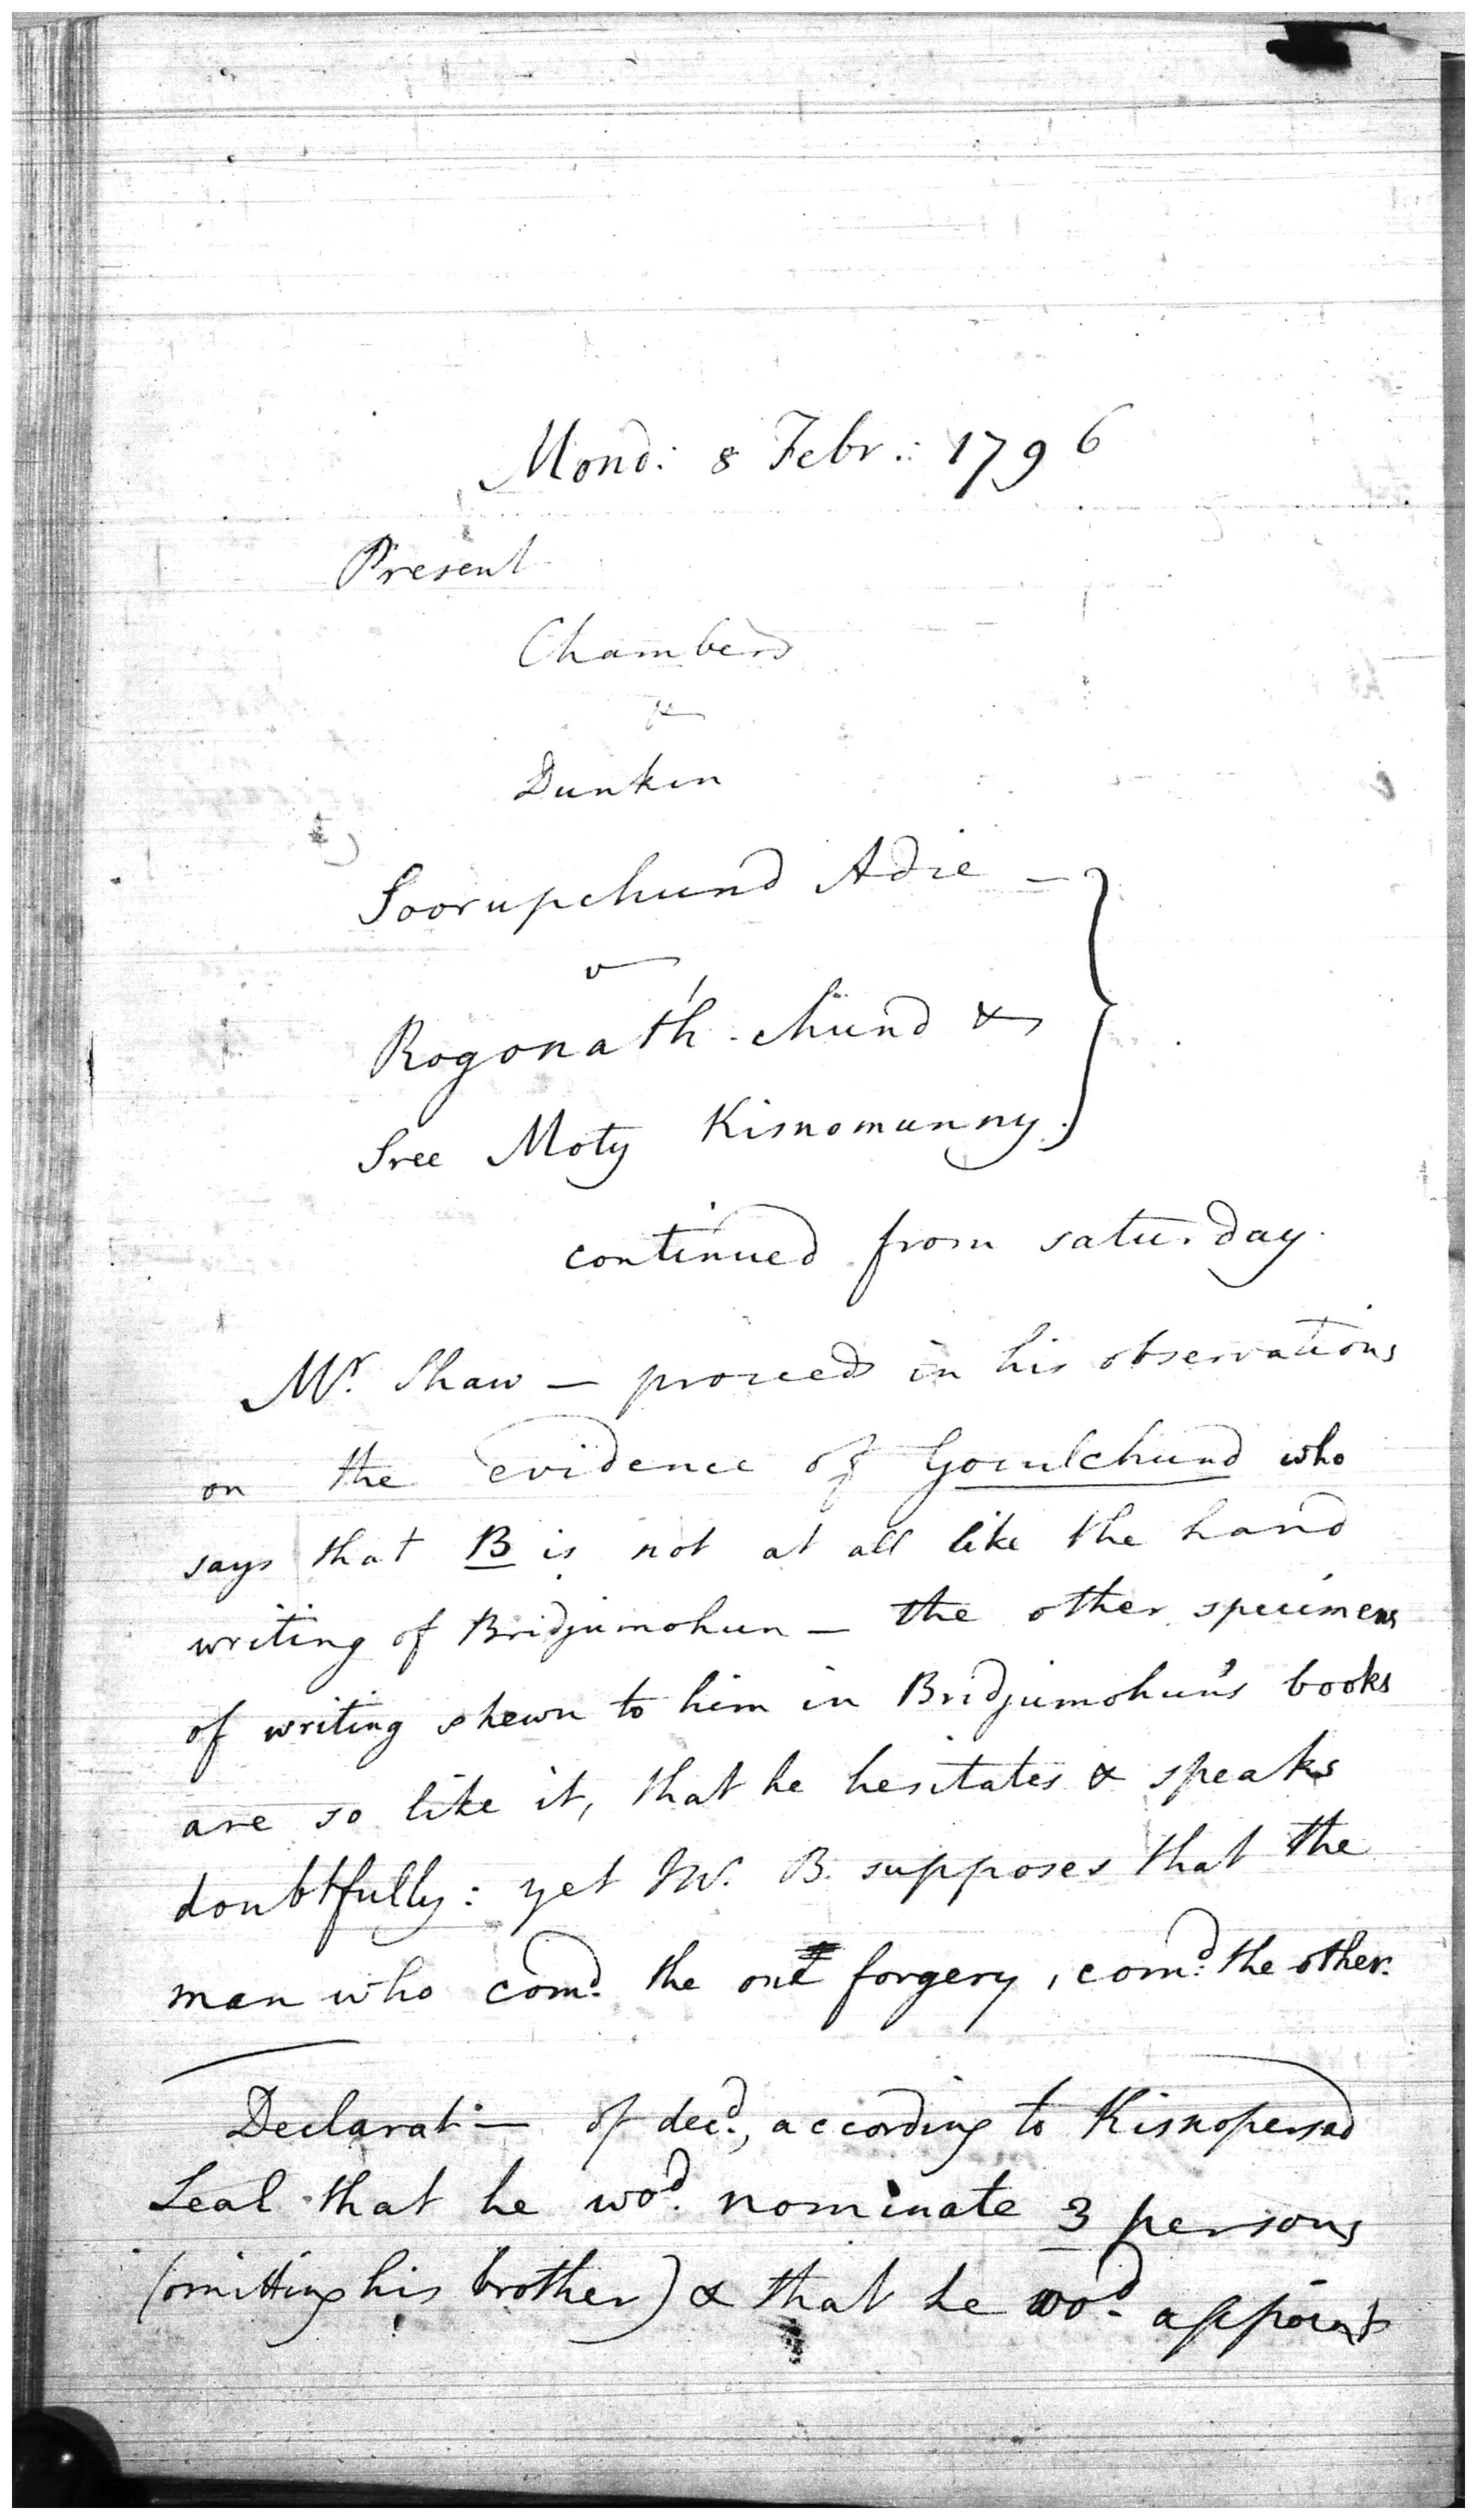 Mond: 8 Febr.: 1796
Present
Chambers
&
Dunkin
Soorupchund Adie —
v
Rogonath chund &
Sree Moty Kisnomunny.
continued from saturday.
Mr. Shaw — proceeds in his observations
on the evidence of Goculchund who
says that B is not at all like the hand
writing of Bridjumohun — the other specimens
of writing shewn to him in Bridjumohun's books
are so like it, that he hesitates & speaks
doubtfully: yet Mr. B. supposes that the
man who comd. the one forgery, comd. the other.
Declarat:— of decd., according to Kisnopersad
Seal that he wod. nominate 3 persons
(omitting his brother) & that he wod. appoint